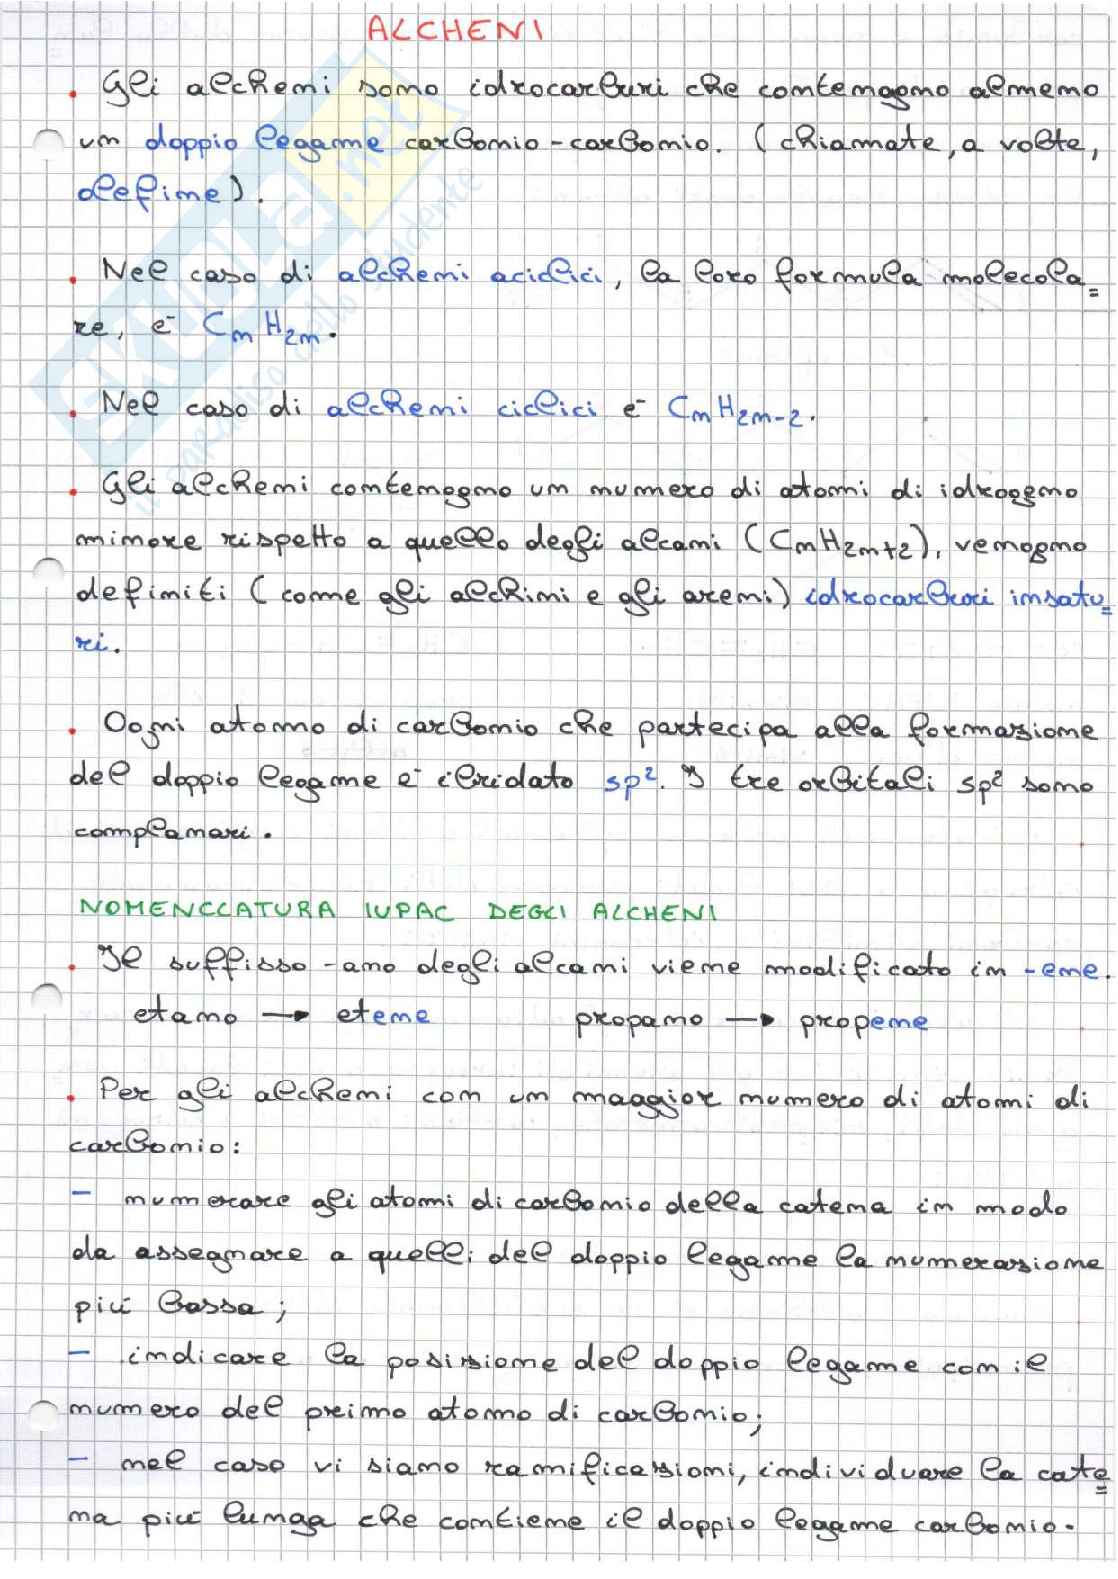 ALCHENI
. Gli alcheni sono idrocarburi che contengono almeno
un doppio legame carbonio-carbonio. (chiamate, a volte,
olefine).
. Nel caso di alcheni aciclici, la loro formula molecola=
re, è CnH2n.
. Nel caso di alcheni ciclici è CnH2n-2.
. Gli alcheni contengono un numero di atomi di idrogeno
minore rispetto a quello degli alcani (CnH2n+2), vengono
definiti (come gli alchini e gli areni) idrocarburi insatu=
ri.
. Ogni atomo di carbonio che partecipa alla formazione
del doppio legame è ibridato sp². I tre orbitali sp² sono
complanari.
NOMENCLATURA IUPAC DEGLI ALCHENI
. Il suffisso -ano degli alcani viene modificato in -ene.
etano → etene propano → propene
. Per gli alcheni con un maggior numero di atomi di
carbonio:
- numerare gli atomi di carbonio della catena in modo
da assegnare a quelli del doppio legame la numerazione
più bassa;
- indicare la posizione del doppio legame con il
numero del primo atomo di carbonio;
- nel caso vi siano ramificazioni, individuare la cate=
na più lunga che contiene il doppio legame carbonio.
skuola.net
il paradiso dello studente